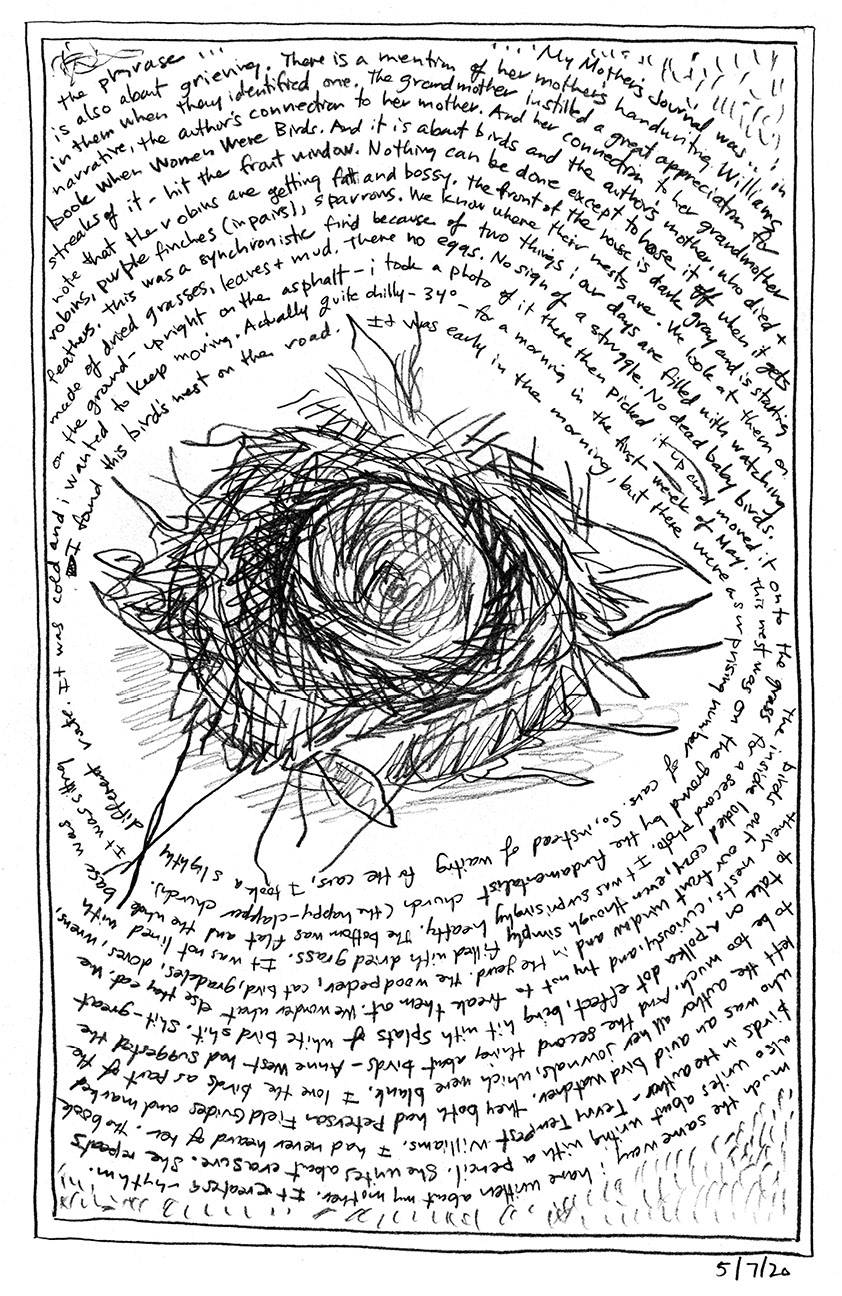 I found this bird's nest on the road. It was early in the morning, but there were a surprising number of cars. So, instead of waiting for the cars, I took a slightly different route. It was
cold and i wanted to keep moving. Actually quite chilly - 34° - for a morning in the first week of May. This nest was on the ground by the fundamentalist church (the happy-clapper church). It was sitting
on the ground - upright on the asphalt - i took a photo of it there then picked it up and moved it onto the grass for a second photo. It was surprisingly hefty. The bottom was flat and the whole base was
made of dried grasses, leaves + mud. There no eggs. No sign of a struggle. No dead baby birds. The inside looked cozy, even though simply filled with dried grass. It was not lined with
feathers. This was a synchronistic find because of two things: our days are filled with watching birds out our front window and in the yard. The woodpecker, cat bird, grackles, doves, wrens,
robins, purple finches (in pairs), sparrows. We know where their nests are. We look at them on their nests, curiously, and try not to freak them out. We wonder what else they eat. We
note that the robins are getting fat and bossy. The front of the house is dark gray and is starting to take on a polka dot effect, being hit with splats of white bird shit. Shit - great
streaks of it - hit the front window. Nothing can be done except to hose it off when it gets to be too much. And the second thing about birds - Anne West had suggested the
book When Women Were Birds. And it is about birds and the author's mother, who died + left the author all her journals, which were blank. I love the birds as part of the
narrative, the author's connection to her mother. And her connection to her grandmother who was an avid bird watcher. They both had Peterson Field Guides and marked
in them when they identified one. The grandmother instilled a great appreciation for birds in the author - Terry Tempest Williams. I had never heard of her. The book
is also about grieving. There is a mention of her mother's handwriting. Williams also writes about writing with a pencil. She writes about erasure. She repeats
the phrase "My Mother's Journal was... in much the same way i have written about my mother. It creates a rhythm.
5/7/20